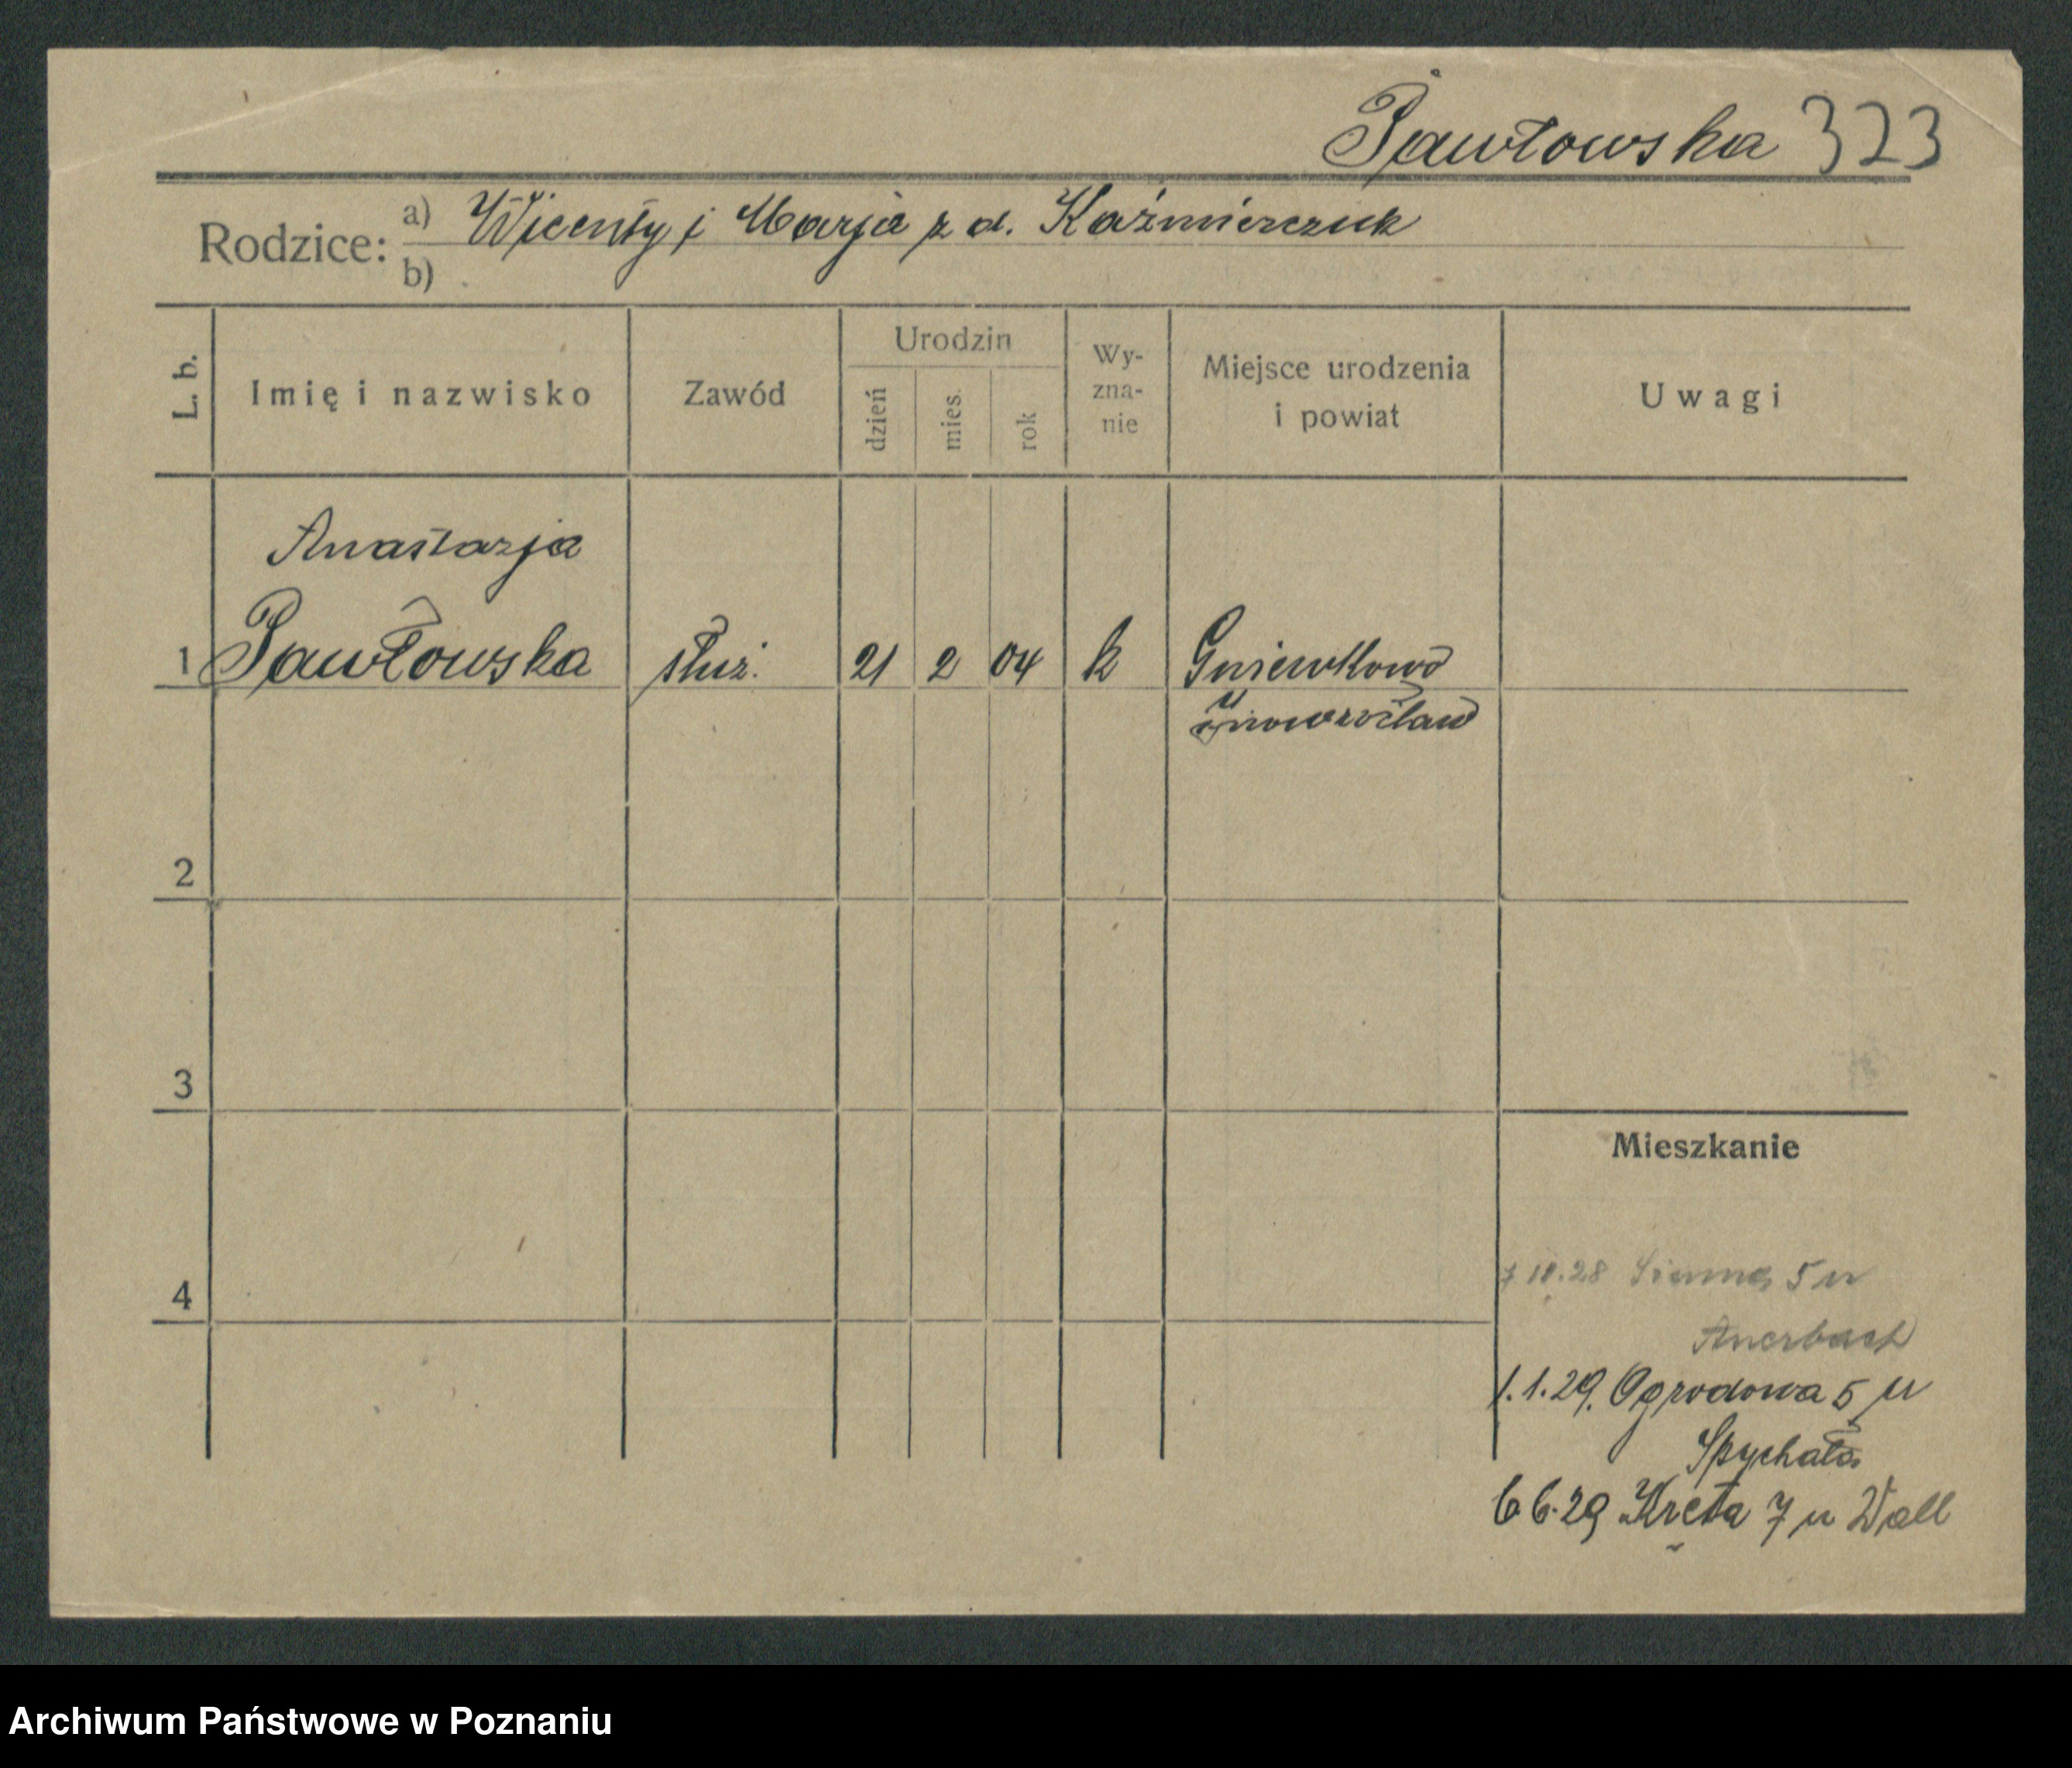 Pawłowska 323
Rodzice: a) Wicenty i Marja z d. Kaźmierczak
b)
L. b. Imię i nazwisko Zawód Urodzin dzień mies. rok Wy-zna-nie Miejsce urodzenia i powiat Uwagi
Anastazja
1 Pawłowska służ. 21 2 04 k Gniewkowo
Inowrocław
2
3
Mieszkanie
4
28 Sienna 5 u
Auerbach
1.1.29. Ogrodowa 5 u
Spychała
6.6.29 Kręta 7 u Wall
Archiwum Państwowe w Poznaniu